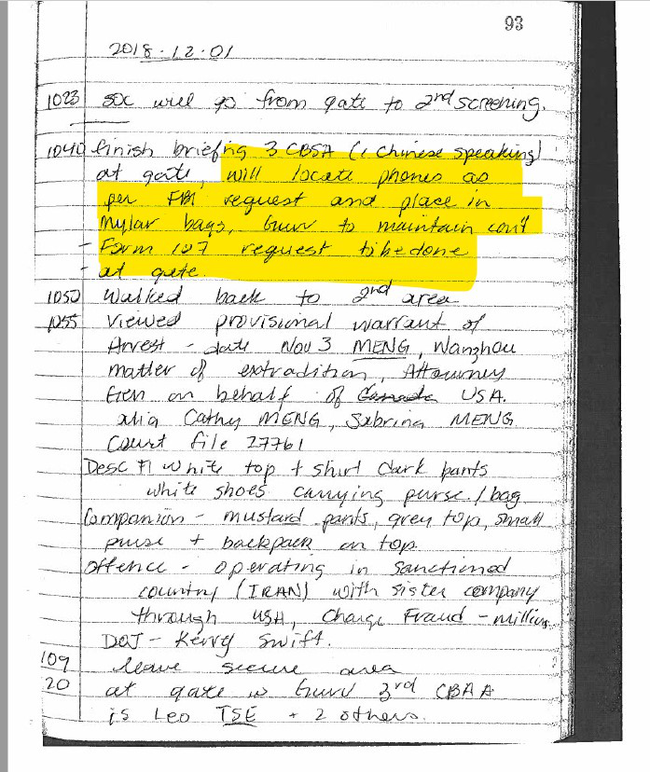 93
2018-12-01
1023 SOC will go from gate to 2nd screening.
1040 finish briefing 3 CBSA (1 Chinese speaking)
at gate, will locate phones as
per FBI request and place in
mylar bags, to maintain cont
- Form 127 request to be done
- at gate.
1050 Walked back to 2nd area
1055 Viewed provisional warrant of
Arrest - date Nov 3 MENG, Wanzhou
matter of extradition, Attorney
Gen on behalf of Canada USA.
alia Cathy MENG, Sabrina MENG
Court file 27761
Desc white top + shirt dark pants
white shoes carrying purse/bag
Companion - mustard pants, grey top, small
purse + backpack on top
offence - operating in sanctioned
country (IRAN) with sister company
through USA, Charge Fraud - millions
DOJ - Kerry Swift.
109 leave secure area
20 at gate 3rd CBAA
is Leo TSE + 2 others.